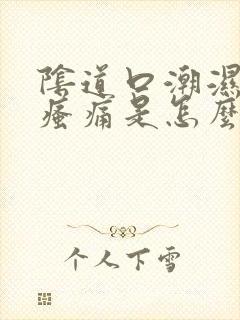 陰道口潮濕
瘙痛是怎麼
个人下雪